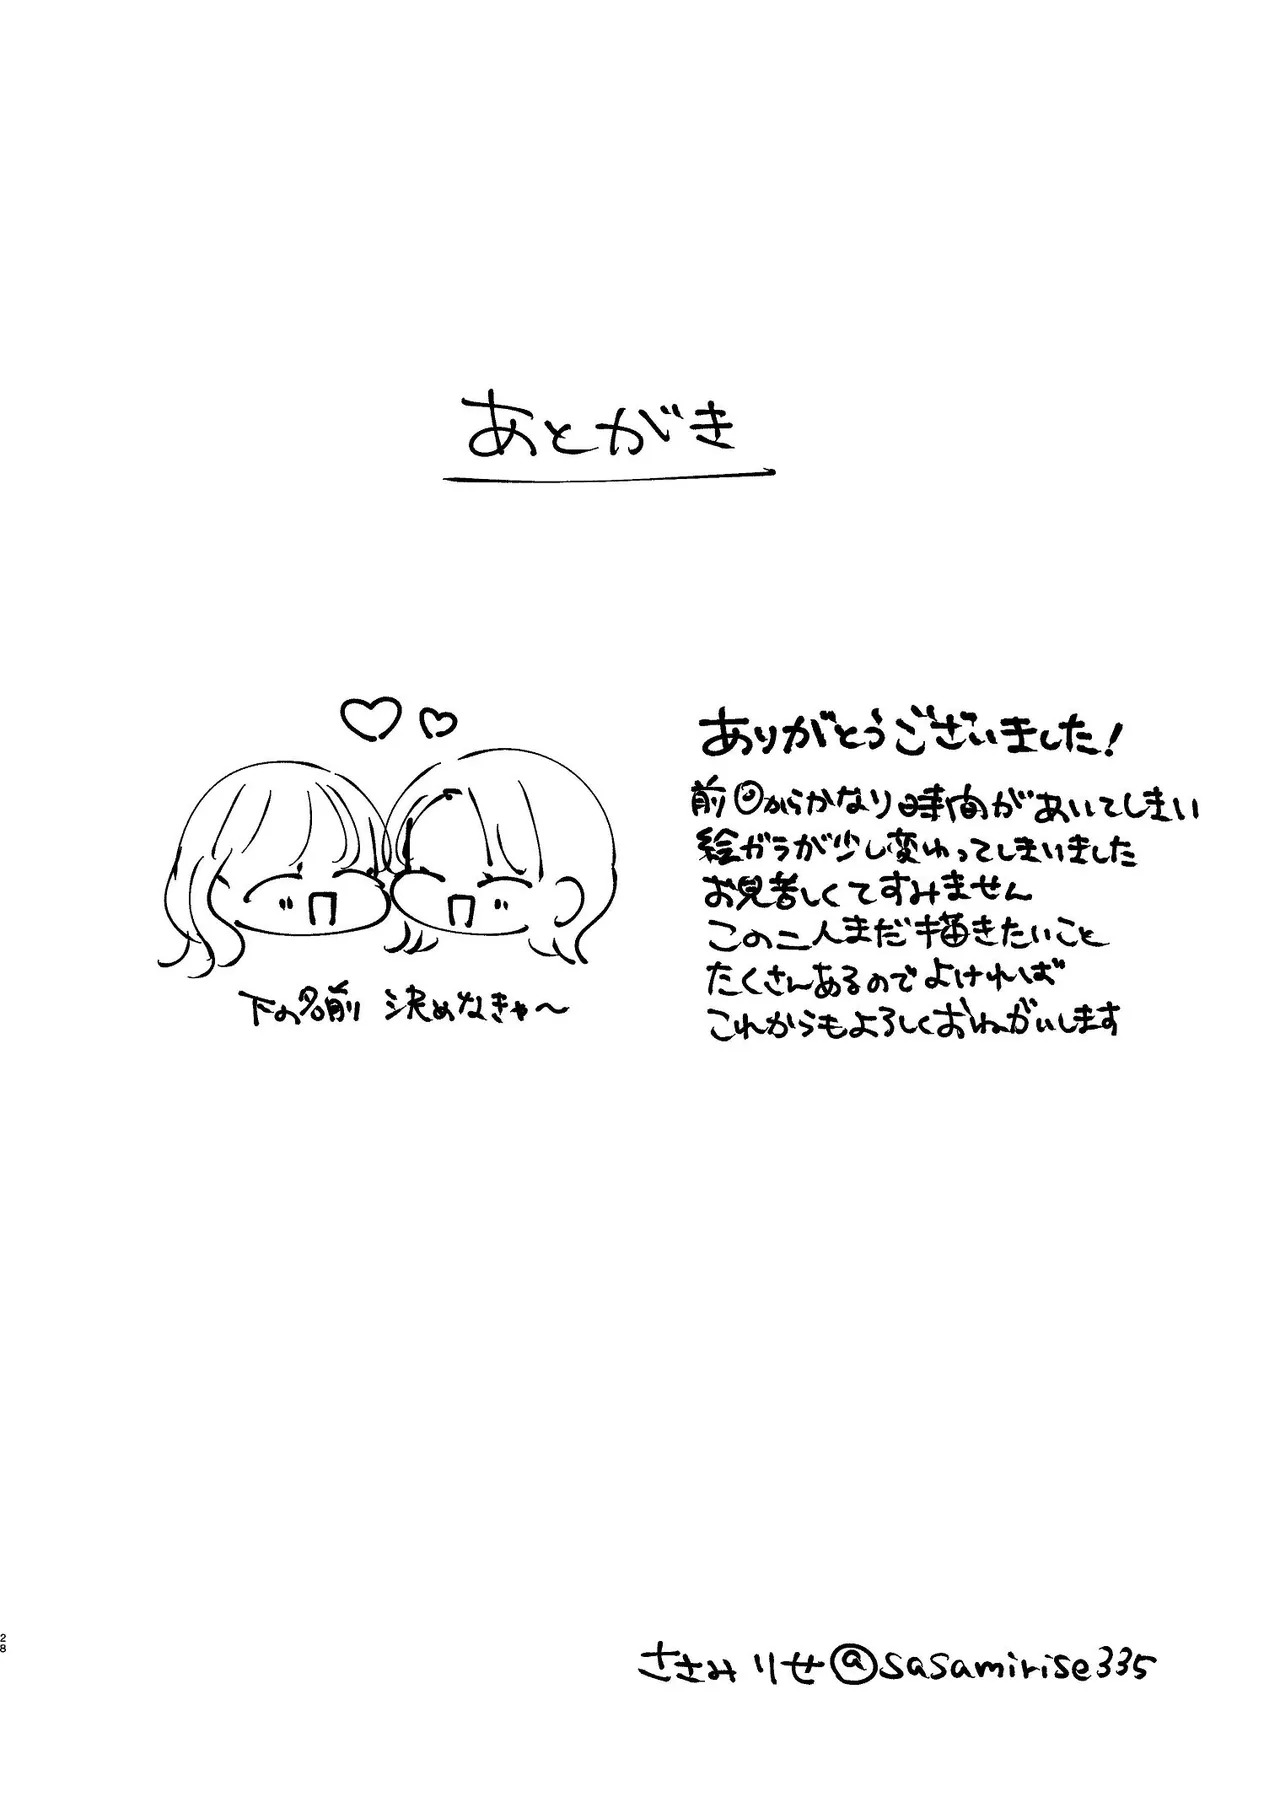 あとがき
ありがとうございました!
前回からかなり時間があいてしまい
絵ガラが少し変わってしまいました
お見苦しくてすみません
この二人まだ描きたいこと
たくさんあるのでよければ
これからもよろしくおねがいします
下の名前 決めなきゃ~
ささみりせ@sasamirise335
28